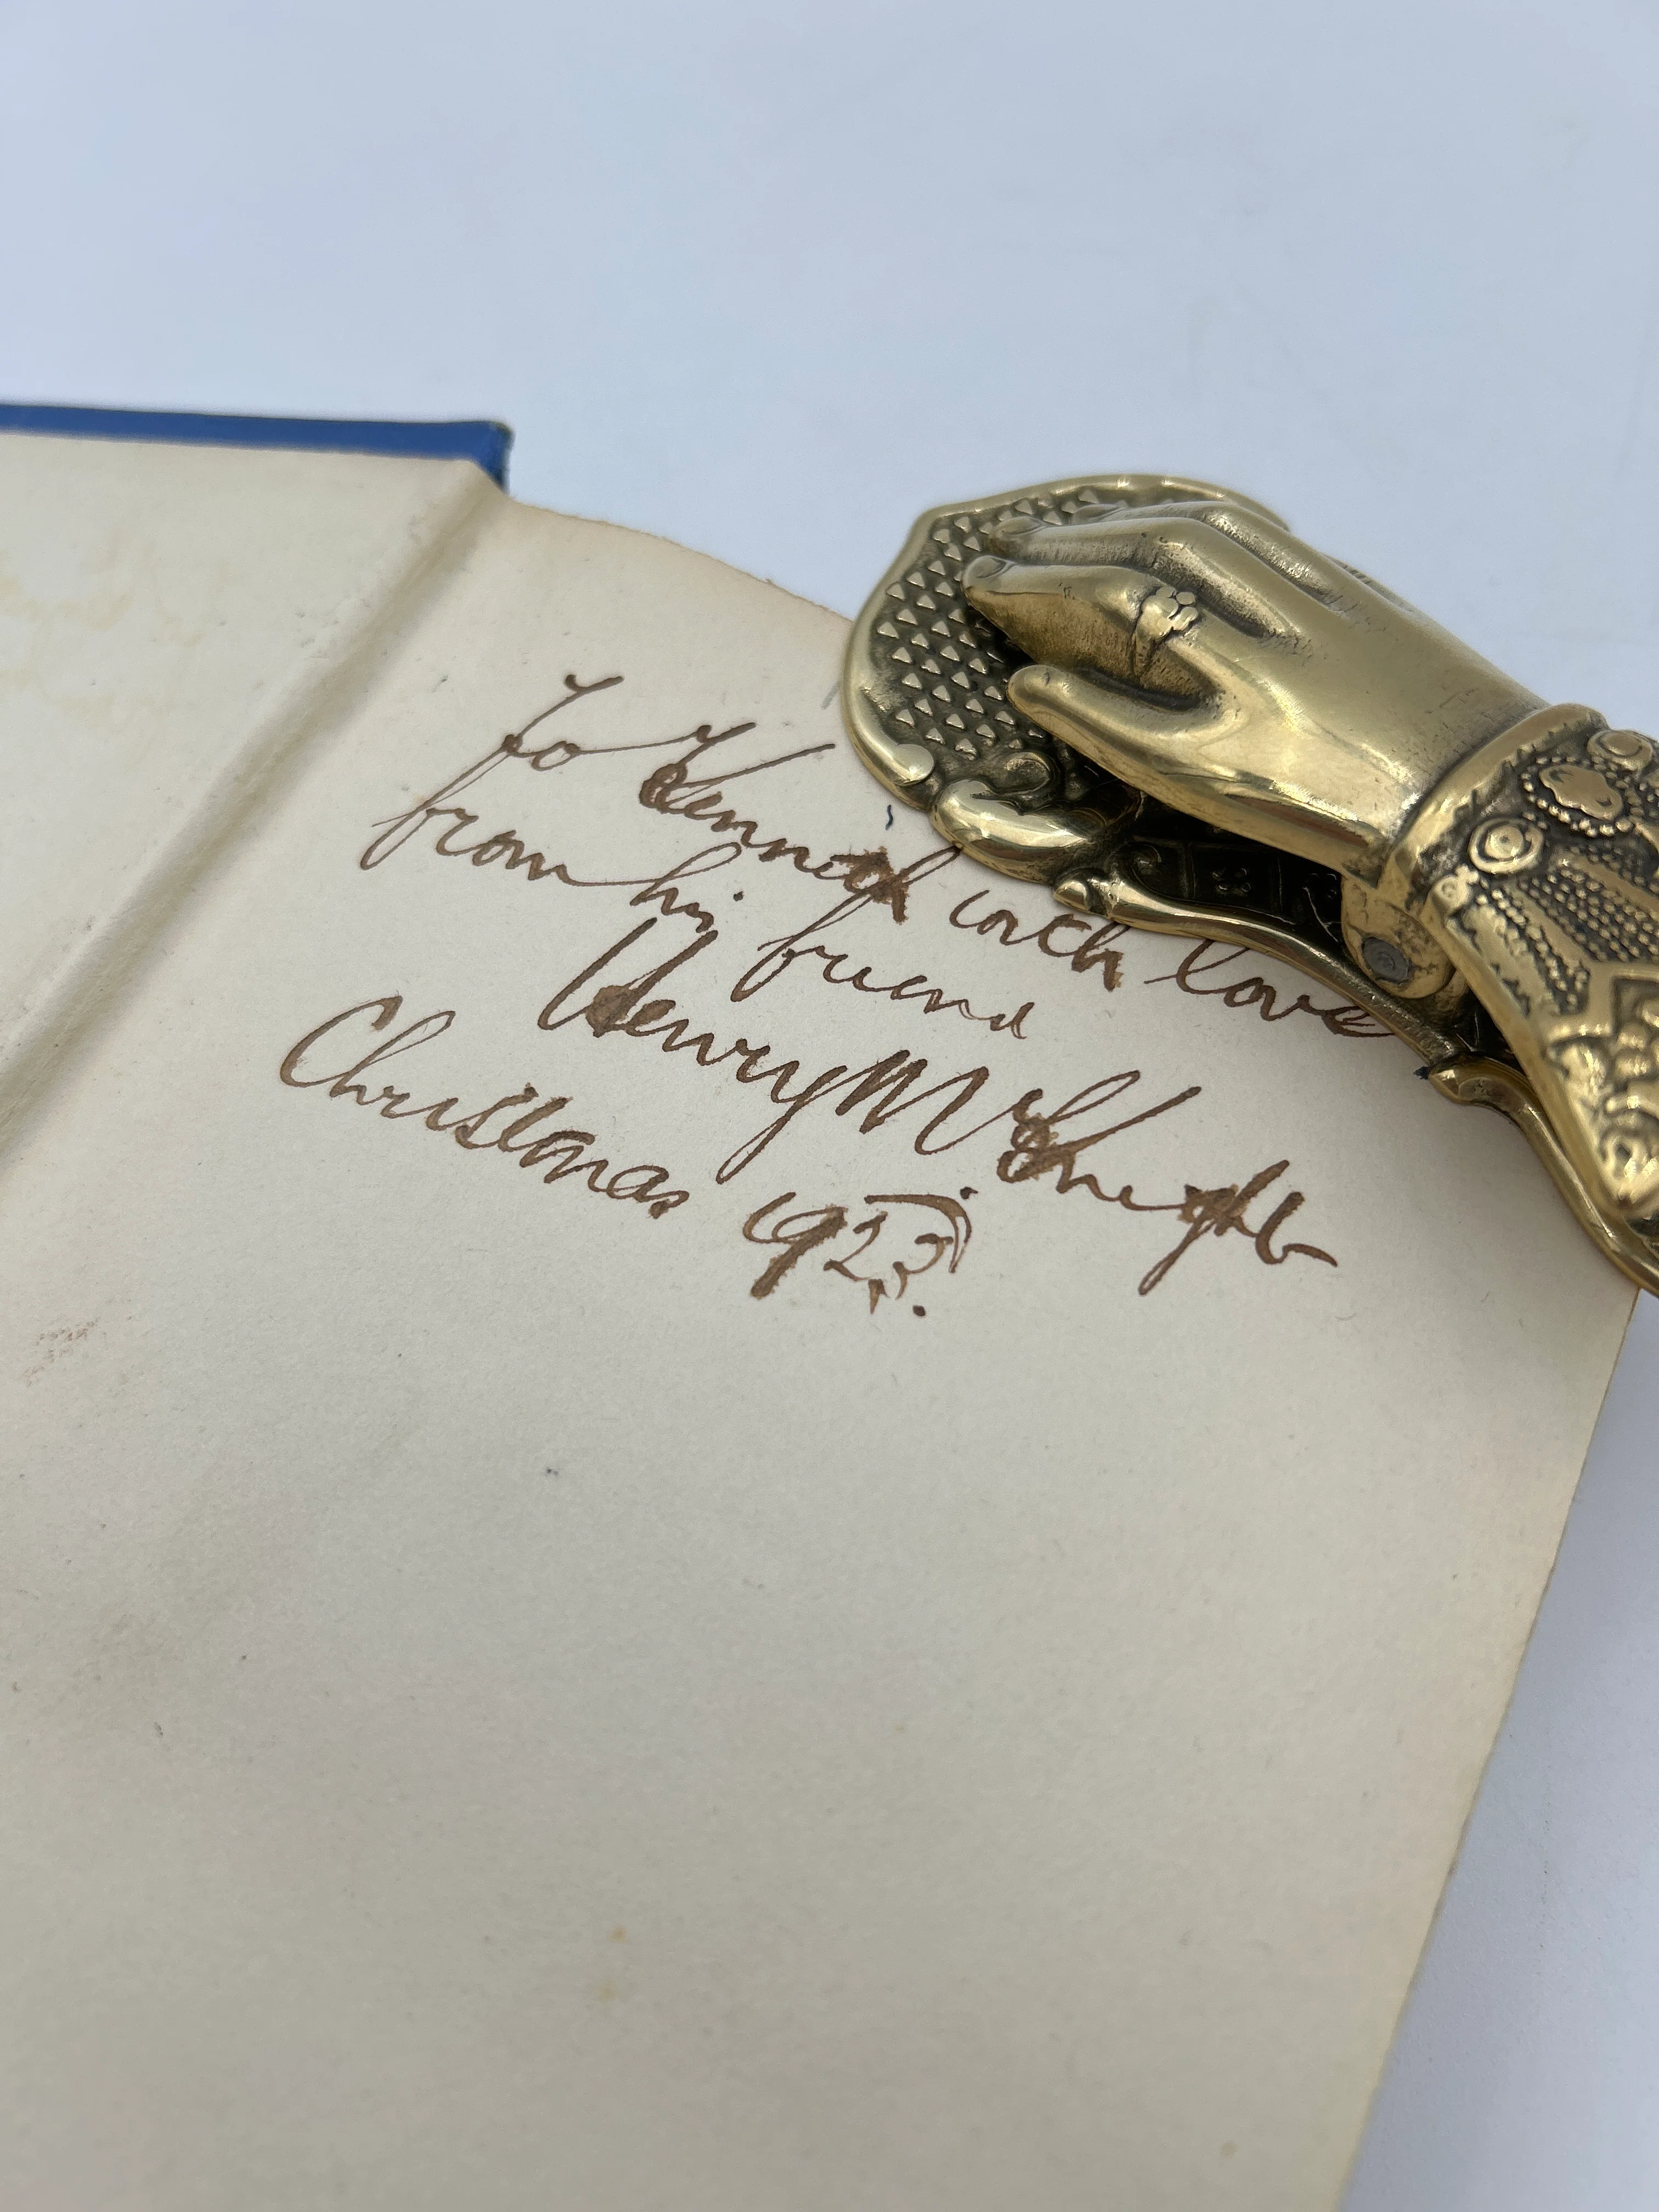 To Kenneth with love
from his friend
Henry M Knight
Christmas 1923.